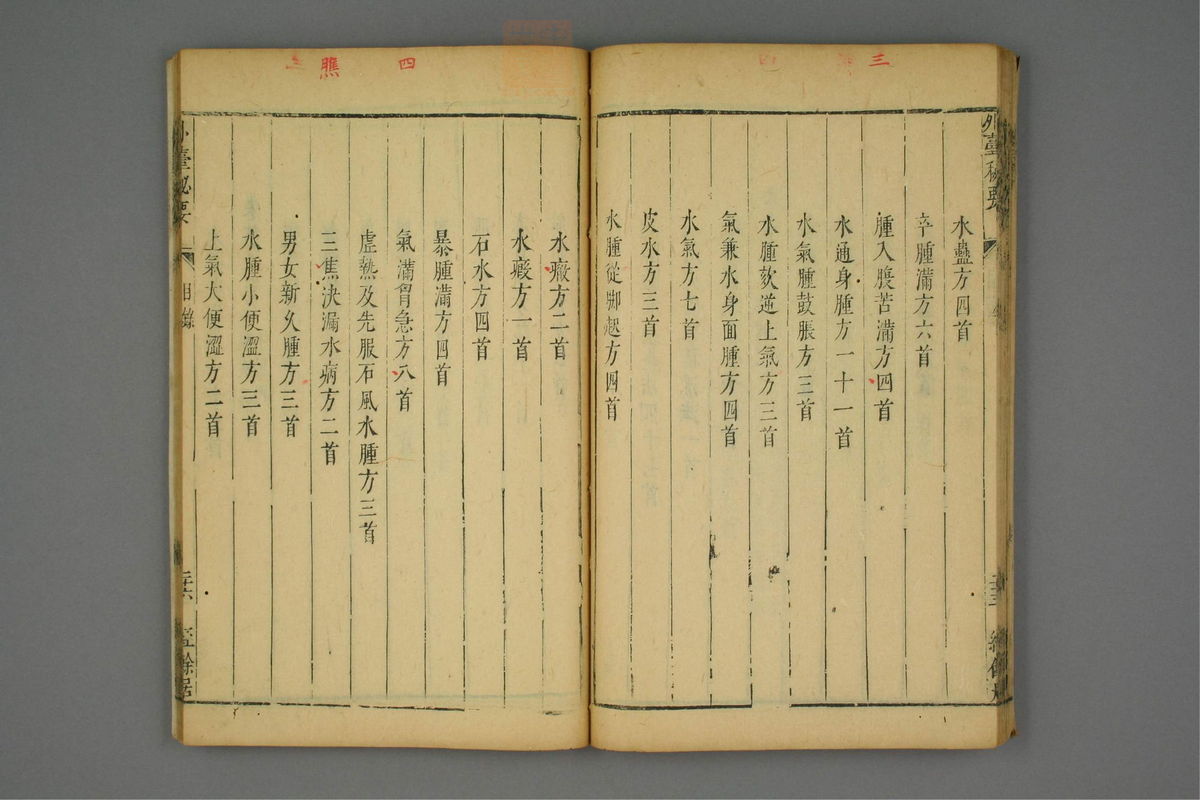 三
外臺秘要
水蠱方四首
卒腫滿方六首
腫入腹苦滿方四首
水通身腫方一十一首
水氣腫鼓脹方三首
水腫欬逆上氣方三首
氣兼水身面腫方四首
水氣方七首
皮水方三首
水腫從脚起方四首
四
瞧
水癥方二首
水瘕方一首
石水方四首
暴腫滿方四首
氣滿胷急方八首
虛熱及先服石風水腫方三首
三焦決漏水病方二首
男女新久腫方三首
水腫小便澀方三首
上氣大便澀方二首
外臺秘要
目錄
二十六
經餘居